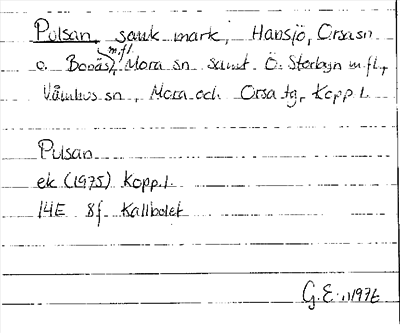 Pulsan, sank mark, Hansjö, Orsa sn
o. Bonäs m.fl., Mora sn samt Ö. Storbyn m.fl.,
Våmhus sn, Mora och Orsa tg, Kopp l.
Pulsan
ek (1975) Kopp. l.
14E 8f Kallbolet
G.E. 1976